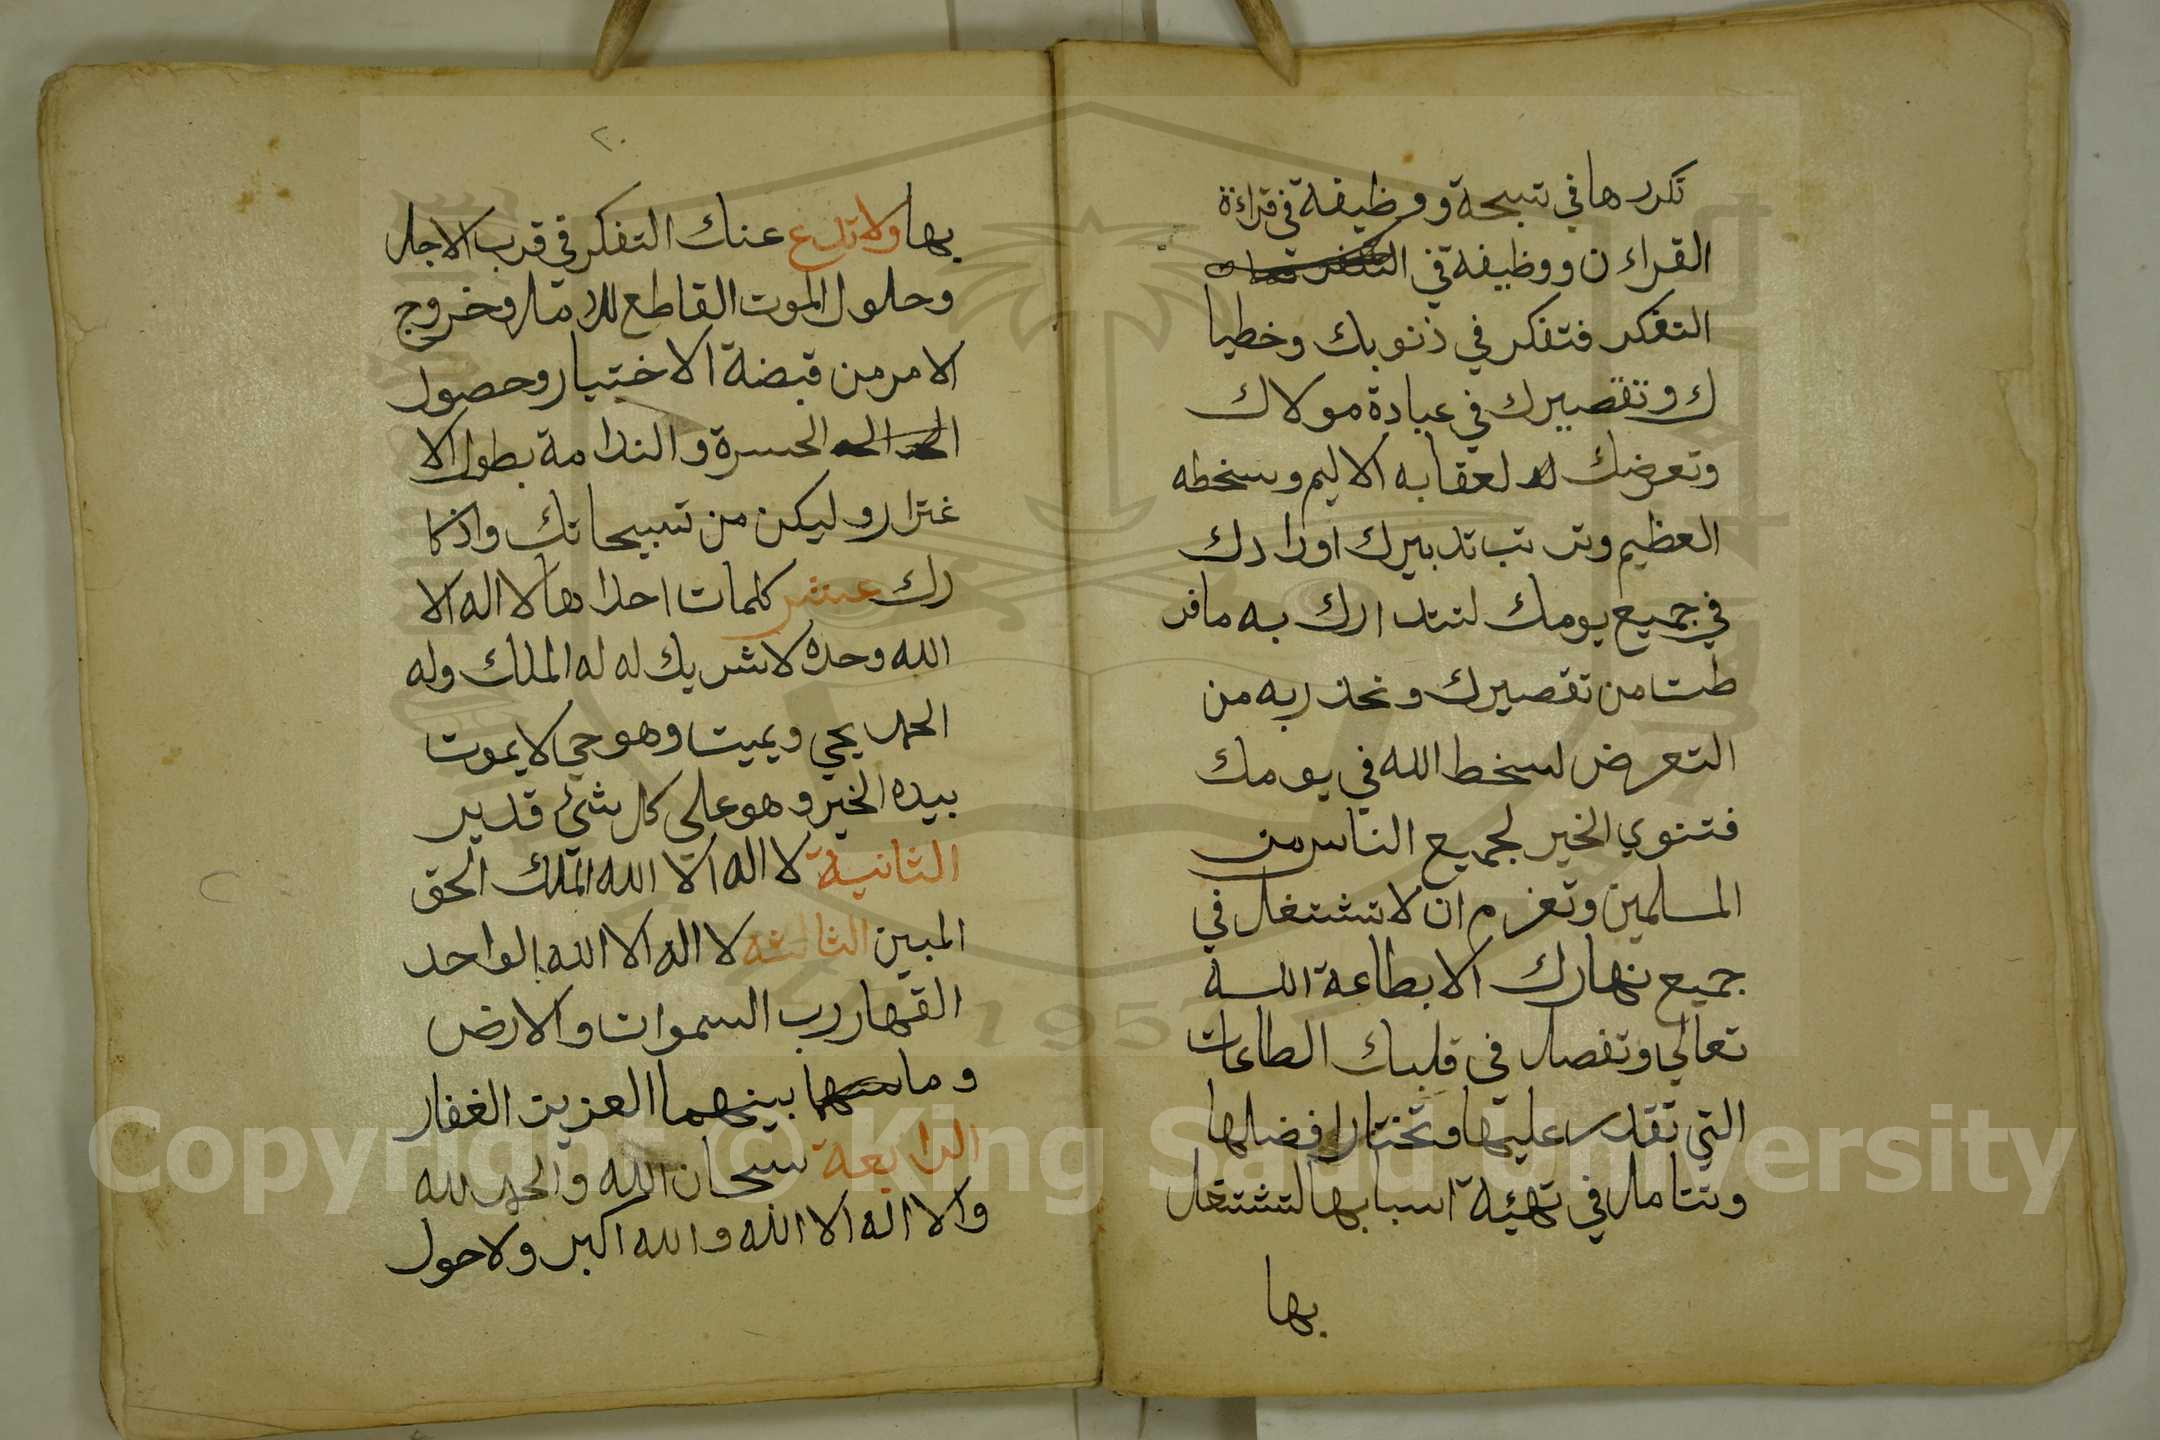 تكررها في تسبحة ووظيفة في قراءة
القراءن ووظيفة في
التفكر فتفكر في ذنوبك وخطيا
ك وتقصيرك في عبادة مولاك
وتعرضك لعقابه الاليم وسخطه
العظيم وترتب تدبيرك اورادك
في جميع يومك لتتدارك به مافر
طت من تقصيرك وتحذر به من
التعرض لسخط الله في يومك
فتنوي الخير لجميع الناس من
المسلمين وتعزم ان لا تشتغل في
جميع نهارك الا بطاعة الله
تعالي وتفصل في قلبك الطاعات
التي تقدر عليها وتختار افضلها
وتتامل في تهيئة اسبابها لتشتغل
بها
٢٠
بها ولا تدع عنك التفكر في قرب الاجل
وحلول الموت القاطع للامل وخروج
الامر من قبضة الاختيار وحصول
الحسرة والندامة بطول الا
غترار وليكن من تسبيحاتك واذكا
رك عشر كلمات احداها لا اله الا
الله وحده لا شريك له له الملك وله
الحمد يحيي ويميت وهو حي لا يموت
بيده الخير وهو علي كل شئ قدير
الثانية لا اله الا الله الملك الحق
المبين الثالثه لا اله الا الله الواحد
القهار رب السموات والارض
وما بينهما العزيز الغفار
الرابعة سبحان الله والحمد لله
ولا اله الا الله والله اكبر ولا حول
Copyright © King Saud University
1957